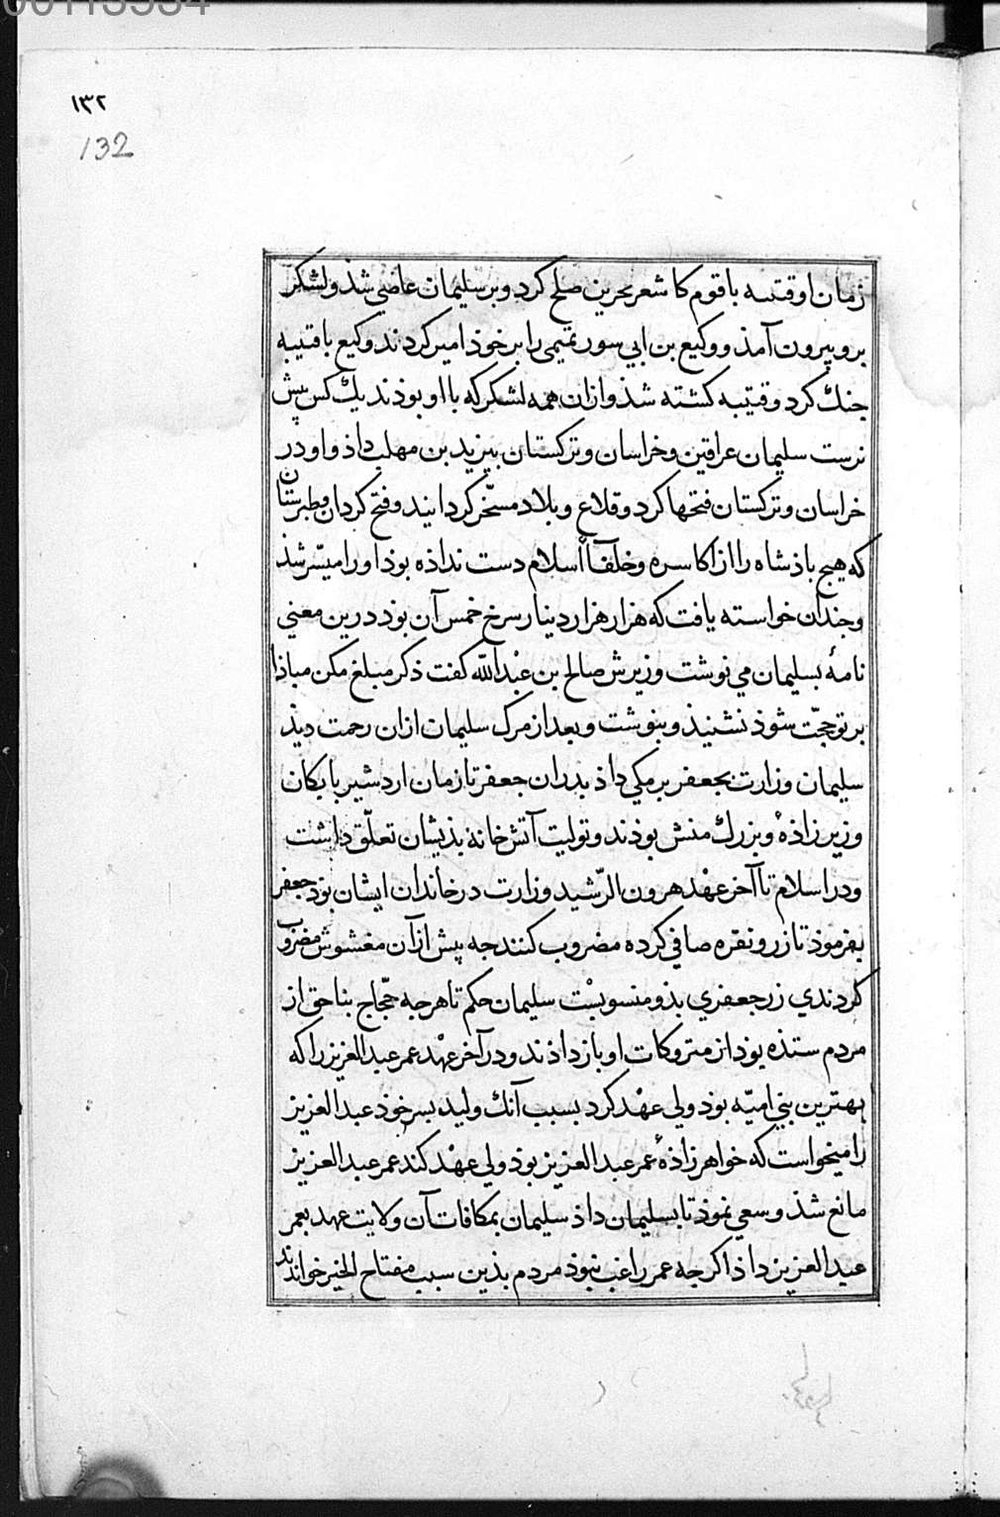 ١٣٢
132
زمان او قتیبه با قوم کاشغر بحرین صلح کرد و بر سلیمان عاصی شذ و لشکر
برو بیرون آمذ و وکیع بن ابی سور تمیمی را بر خوذ امیر کردند وکیع با قتیبه
جنك کرد و قتیبه کشته شذ و ازان همه لشکر که با او بوذند یك کس بیش
نرست سلیمان عراقین و خراسان و ترکستان بیزید بن مهلب داذ و او در
خراسان و ترکستان فتحها کرد و قلاع و بلاد مسخّر کردانید و فتح کردان و طبرستان
که هیج باذشاه را از اکاسره و خلفاء اسلام دست نداذه بوذ او را میسّر شذ
وجندان خواسته یافت که هزار هزار دینار سرخ خمس آن بوذ درین معنی
نامهٔ بسلیمان می نوشت وزیرش صالح بن عبدالله کفت ذکر مبلغ مکن مباذا
بر تو حجّت شوذ نشنیذ و بنوشت و بعد از مرک سلیمان ازان رحمت دیذ
سلیمان وزارت بجعفر برمکی داذ بدران جعفر تا زمان اردشیر بابکان
وزیر زاذهٔ و بزرك منش بوذند و تولیت آتش خانه بذیشان تعلّق داشت
و در اسلام تا آخر عهد هرون الرّشید وزارت در خاندان ایشان بوذ جعفر
بفرموذ تا زر و نقره صافی کرده مضروب کنند جه بیش از آن مغشوش مضروب
کردندی زر جعفری بذو منسوبست سلیمان حکم تا هرجه حجّاج بناحق از
مردم ستذه بوذ از متروکات او باز داذند و در آخر عهد عمر عبدالعزیز را که
بهترین بنی امیّه بوذ ولی عهد کرد بسبب آنك ولید بسر خوذ عبدالعزیز
را میخواست که خواهرزاذهٔ عمر عبدالعزیز بوذ ولی عهد کند عمر عبدالعزیز
مانع شذ و سعی نموذ تا بسلیمان داذ سلیمان بمکافات آن ولایت عهد بعمر
عبدالعزیز داذ اکرجه عمر راغب نبوذ مردم بذین سبب مفتاح الخیر خواندند